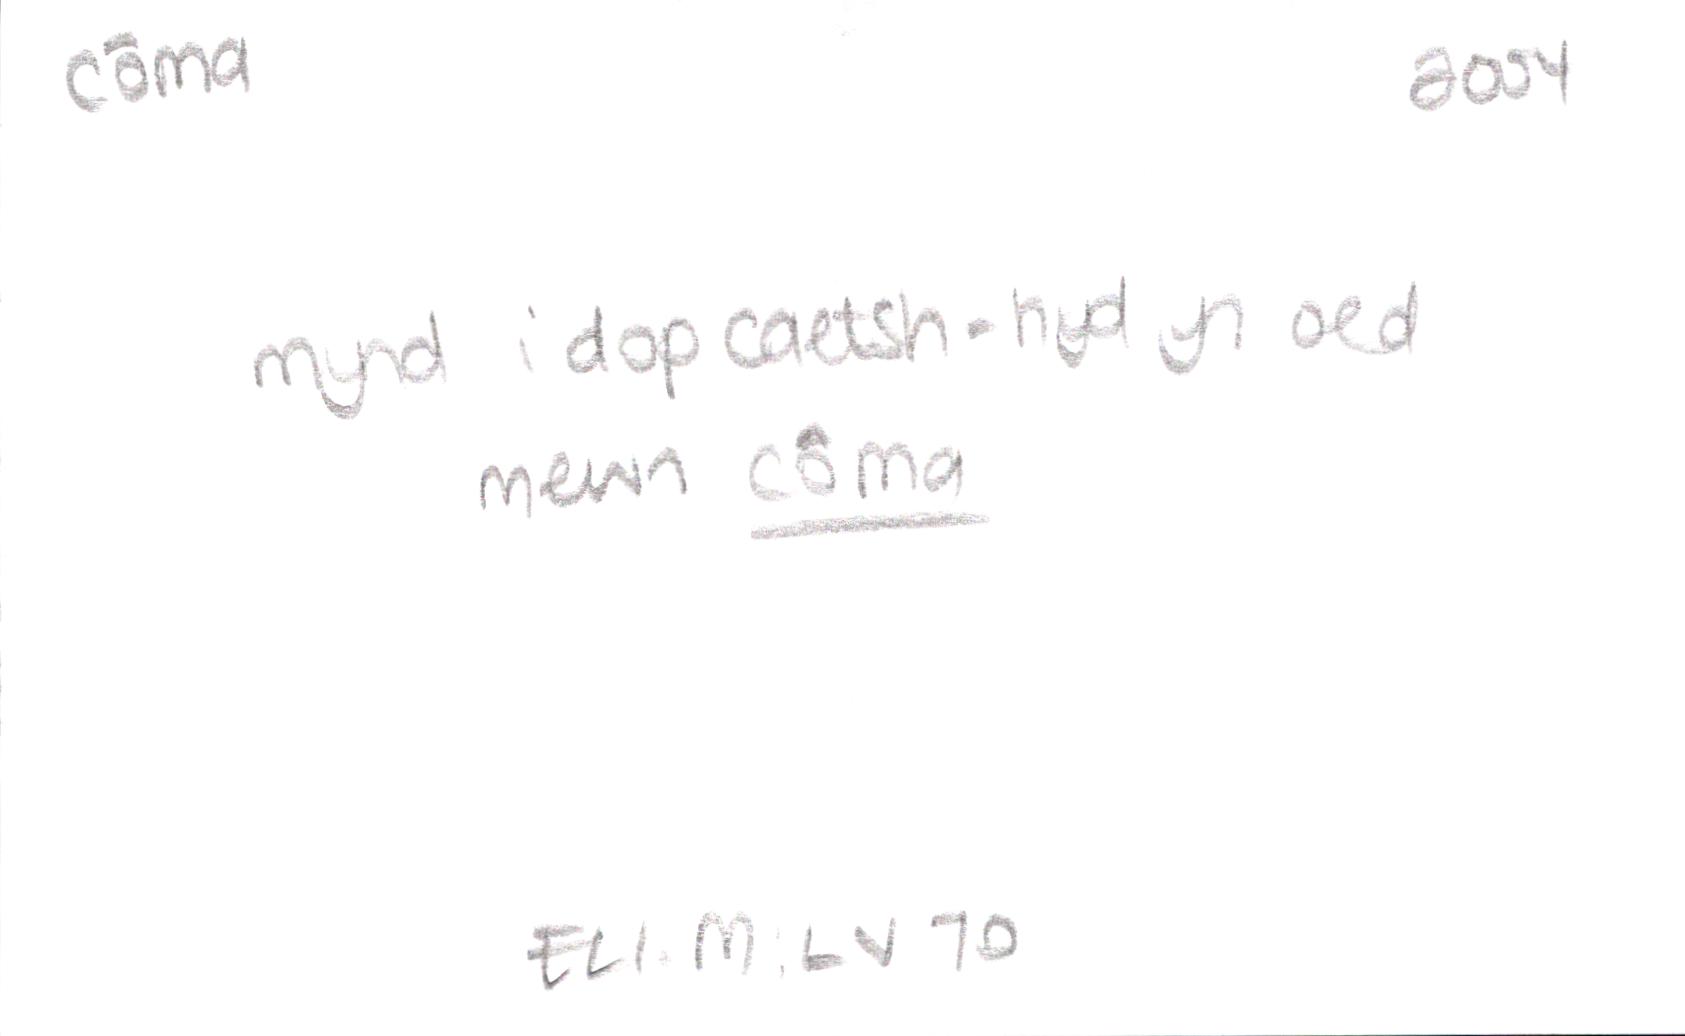 côma 2004
mynd i dop caetsh - hyd yn oed
mewn côma
ELl. M: LV 70